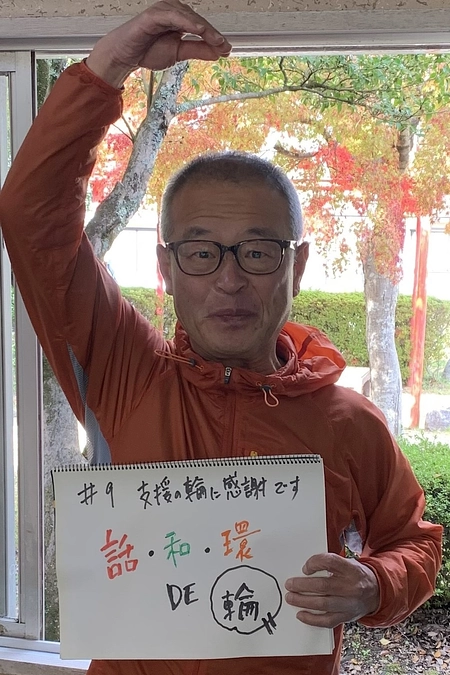 #9 支援の輪に感謝です
話・和・環
DE 輪